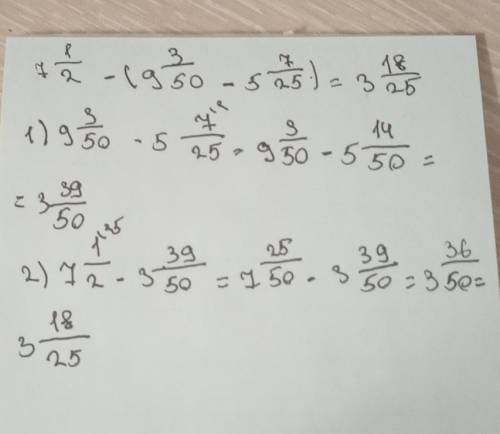 7 1/2 - (9 3/50 - 5 7/25) = 3 18/25
1) 9 3/50 - 5 7/25 = 9 3/50 - 5 14/50 =
= 3 39/50
2) 7 1/2 ^25 - 3 39/50 = 7 25/50 - 3 39/50 = 3 36/50 =
3 18/25